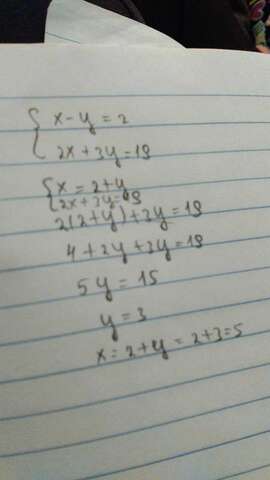 x-y=2
2x+3y=19
x=2+y
2x+3y=19
2(2+y)+3y=19
4+2y+3y=19
5y=15
y=3
x=2+y=2+3=5